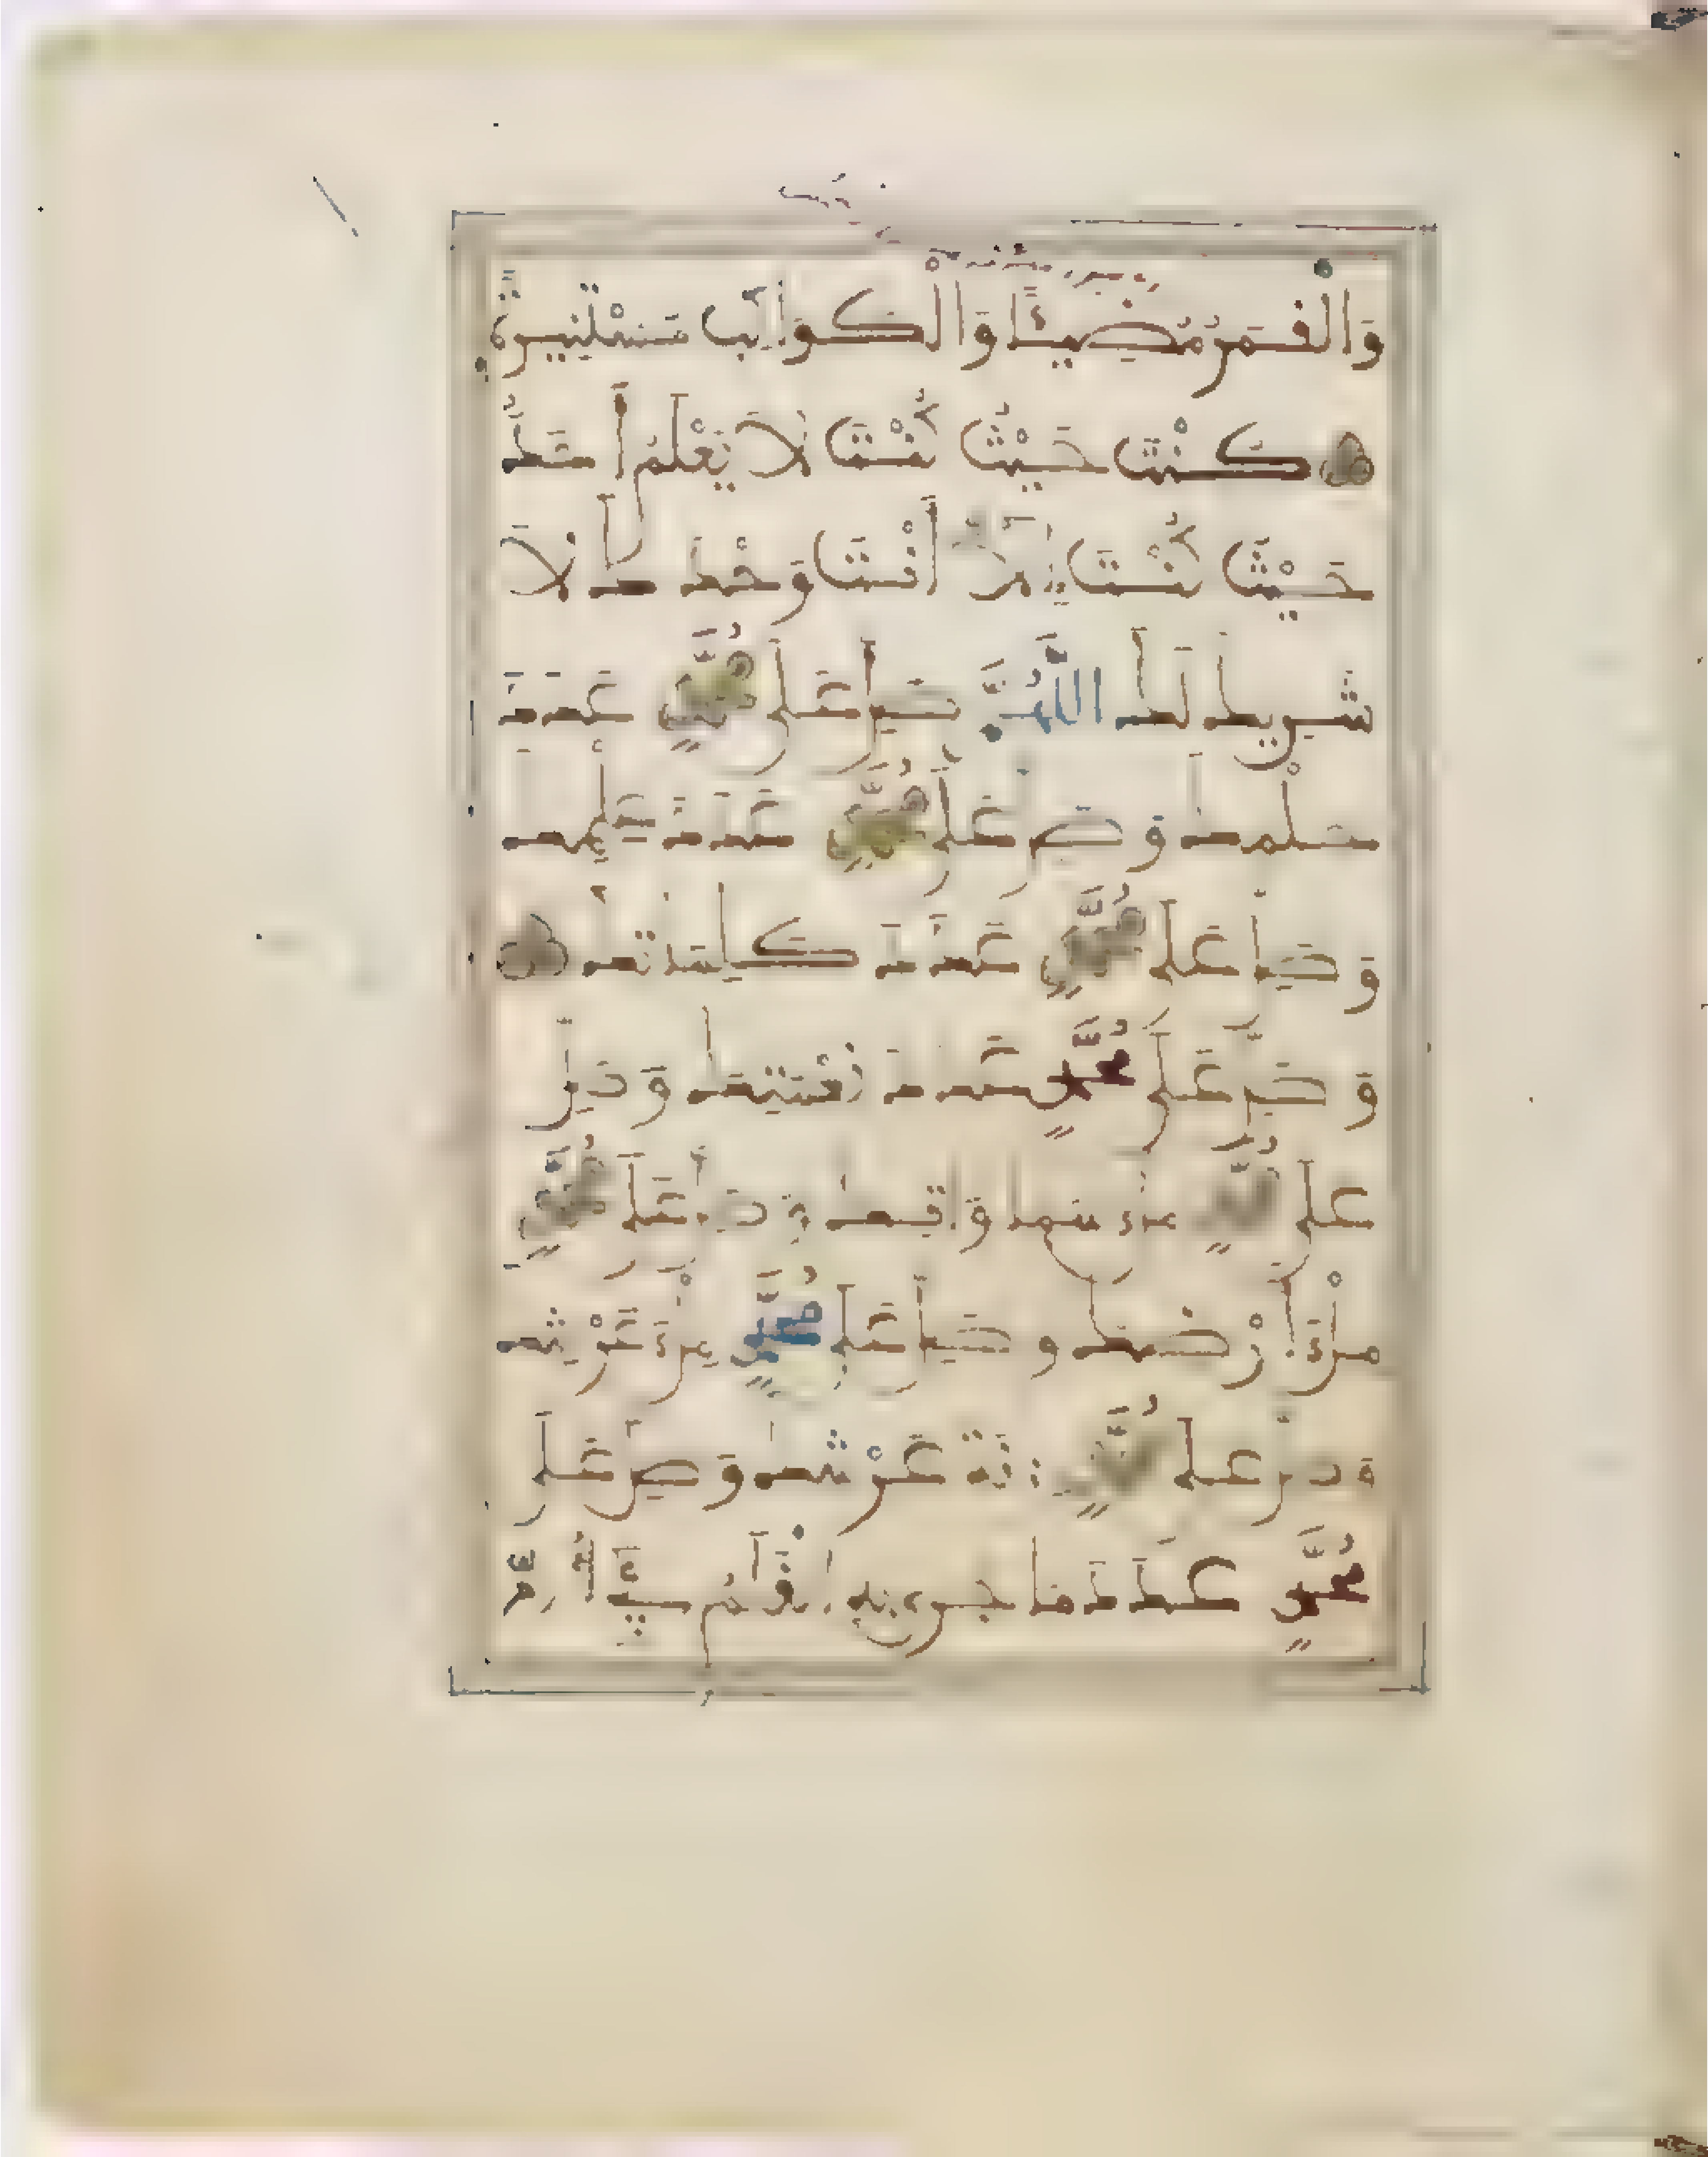 وَالْقَمَرُ مُضِيئًا وَالْكَوَاكِبُ مُسْتَنِيرَةً
كُنْتَ حَيْثُ كُنْتَ لَا يَعْلَمُ أَحَدٌ
حَيْثُ كُنْتَ إِلَّا أَنْتَ وَحْدَكَ لَا
شَرِيكَ لَكَ اللَّهُمَّ صَلِّ عَلَى مُحَمَّدٍ عَدَدَ
حِلْمِكَ وَصَلِّ عَلَى مُحَمَّدٍ عَدَدَ عِلْمِكَ
وَصَلِّ عَلَى مُحَمَّدٍ عَدَدَ كَلِمَاتِكَ
وَصَلِّ عَلَى مُحَمَّدٍ عَدَدَ نِعْمَتِكَ وَصَلِّ
عَلَى مُحَمَّدٍ مِلْءَ سَمَاوَاتِكَ وَصَلِّ عَلَى مُحَمَّدٍ
مِلْءَ أَرْضِكَ وَصَلِّ عَلَى مُحَمَّدٍ مِلْءَ عَرْشِكَ
وَصَلِّ عَلَى مُحَمَّدٍ زِنَةَ عَرْشِكَ وَصَلِّ عَلَى
مُحَمَّدٍ عَدَدَ مَا جَرَى بِهِ الْقَلَمُ